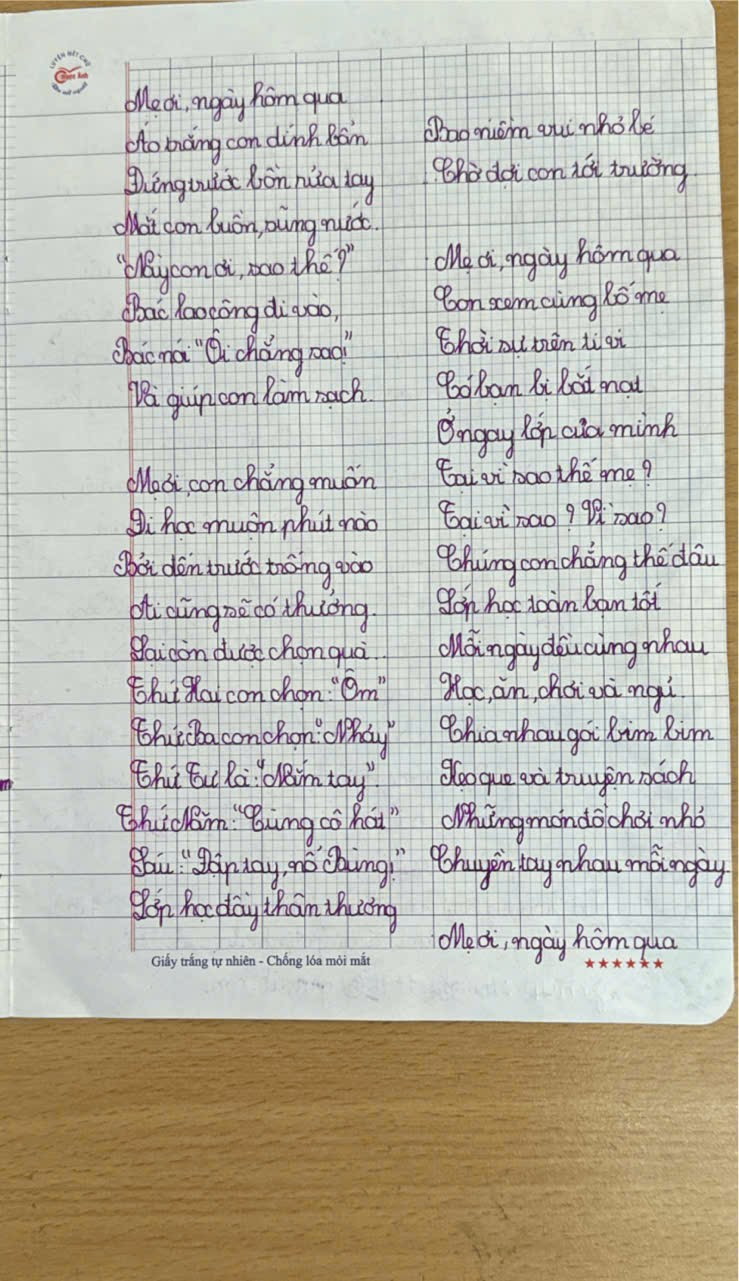 LUYỆN NÉT CHỮ
Ngọc Ánh
Mẹ ơi, ngày hôm qua
Áo trắng con dính bẩn
Đứng trước bồn rửa tay
Mắt con buồn, rũng nước.
"Này con ơi, sao thế?"
Bác lao công đi vào,
Bác nói "Ôi chẳng sao!"
Và giúp con làm sạch.
Mẹ ơi, con chẳng muốn
Đi học muộn phút nào
Bởi đến trước trống vào
Ai cũng sẽ có thưởng.
Lại còn được chọn quà
Thứ Hai con chọn: "Ôm"
Thứ Ba con chọn: "Nháy"
Thứ Tư là: "Nắm tay".
Thứ Năm: "Cùng cô hát"
Sáu: "Đập tay, nổ Bùng!"
Lớp học đầy thân thương
Bao niềm vui nhỏ bé
Chờ đợi con tới trường
Mẹ ơi, ngày hôm qua
Con xem cùng bố mẹ
Thời sự trên ti vi
Có bạn bị bắt nạt
Ở ngay lớp của mình
Tại vì sao thế mẹ?
Tại vì sao? Vì sao?
Chúng con chẳng thế đâu
Lớp học toàn bạn tốt
Mỗi ngày đều cùng nhau
Học, ăn, chơi và ngủ.
Chia nhau gói bim bim
Kẹo que và truyện sách
Những món đồ chơi nhỏ
Chuyền tay nhau mỗi ngày
Mẹ ơi, ngày hôm qua
Giấy trắng tự nhiên - Chống lóa mỏi mắt